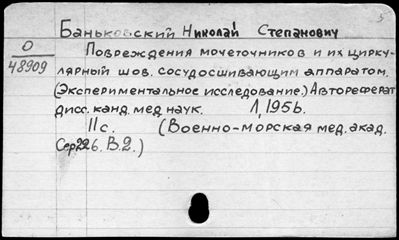 Баньковский Николай Степанович
О
48909
Повреждения мочеточников и их цирку-
лярный шов сосудосшивающим аппаратом.
(Экспериментальное исследование.) Автореферат
дисс. канд. мед наук. Л, 1956.
11с. (Военно-морская мед. акад.
В.2.)